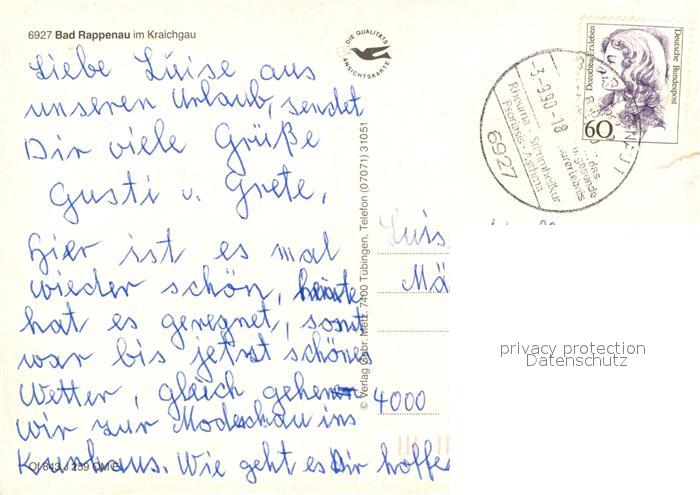 6927 Bad Rappenau im Kraichgau
Liebe Luise aus
unseren Urlaub, sendet
Dir viele Grüße
Gusti u. Grete,
Hier ist es mal
wieder schön, heute
hat es geregnet, sonst
war bis jetzt schönes
Wetter, gleich gehen
wir zur Modeschau ins
Kurhaus. Wie geht es Dir hoffe
Of 843 J 259 OM E
DIE QUALITÄTS
ANSICHTSKARTE
© Verlag Gebr. Metz, 7400 Tübingen, Telefon (07071) 31051
Dorothea Erxleben
Deutsche Bundespost
60
-3.-9.90-18
Rheuma
Psoriasis Asthma
6927
1
Luis
Mä
4000
privacy protection
Datenschutz